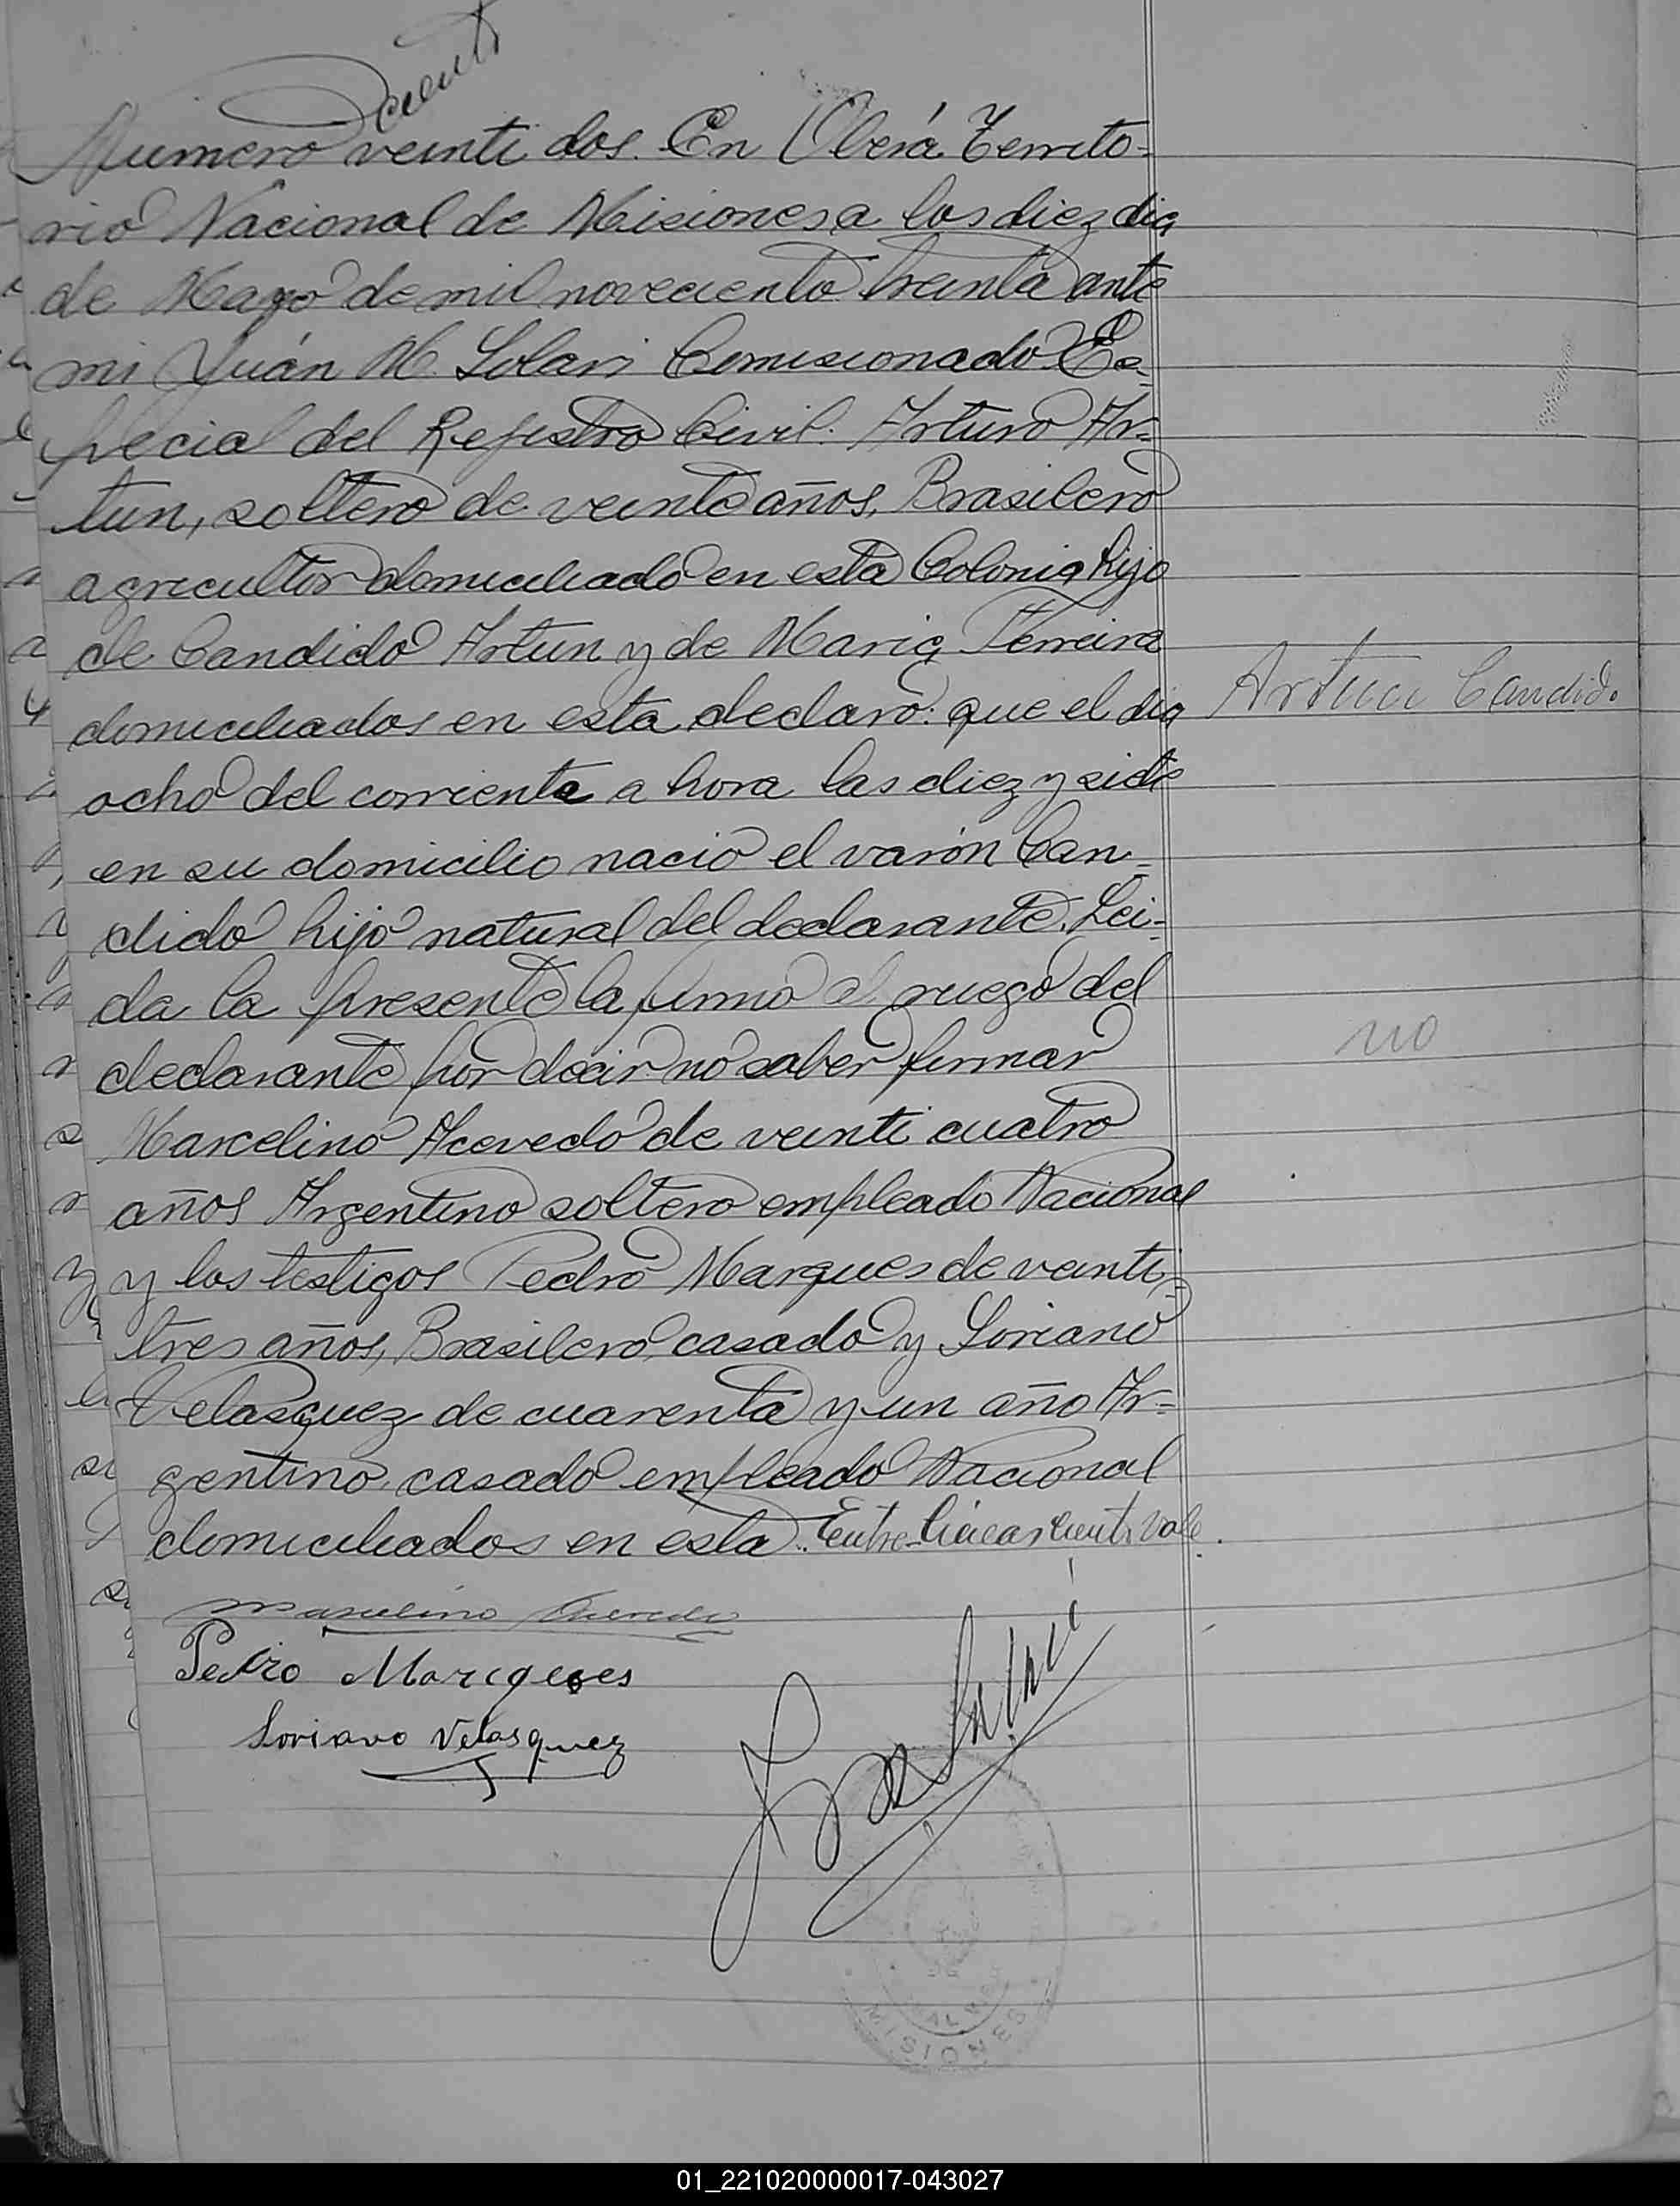 ciento
Numero veinti dos. En Oberá Territo-
rio Nacional de Misiones, a los diez dia
de Mayo de mil noveciento treinta ante
mi Juán M. Solari Comisionado Es-
pecial del Registro Civil: Arturo Ar-
tun, soltero de veinte años, Brasilero
agricultor domiciliado en esta Colonia hijo
de Candido Artun y de Maria Ferreira
domiciliados en esta declaró: que el dia
Artun Candido.
ocho del corriente a hora las diez y siete
en su domicilio nació el varón Can-
dido hijo natural del declarante. Lei-
da la presente la firmó a ruego del
no
declarante por decir no saber firmar
Marcelino Acevedo de veinti cuatro
años Argentino soltero empleado Nacional
y los testigos Pedro Marques de veinti-
tres años, Brasilero, casado y Soriano
Velasquez de cuarenta y un año Ar-
gentino, casado empleado Nacional
domiciliados en esta. Entre-lineas ciento Vale.
Marcelino Acevedo
Pedro Marques
Soriano Velasquez
MISIONES
01_221020000017-043027